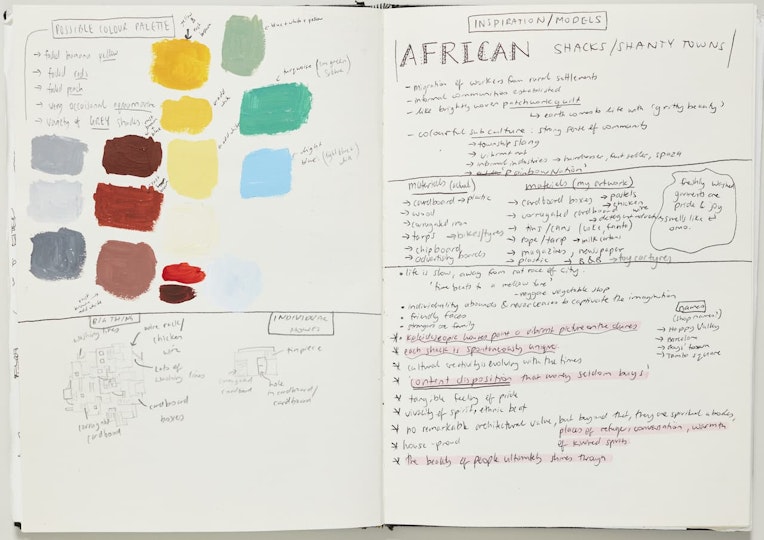 POSSIBLE COLOUR PALETTE
→ faded banana yellow
→ faded reds
→ faded pinks
→ very occasional
→ variety of GREY shades
yellow & red brown
blue + white + yellow
turquoise (
blue)
light blue (light blue +
BIG THING
washing lines
wire rack/
chicken
wire
lots of
washing lines
cardboard
boxes
corrugated
cardboard
INDIVIDUAL
HOUSES
tin piece
corrugated
cardboard
hole
in cardboard/
cardboard
INSPIRATION/MODELS
AFRICAN SHACKS/SHANTY TOWNS
- migration of workers from rural settlements
- informal communities established
- like brightly woven patchwork quilt
↳ earth comes to life with 'gritty beauty'
- colourful subculture: strong sense of community
→ township slang
→ vibrant art
→ informal industries → hairdresser, fruit seller, spaza
→ Rainbow Nation
materials (actual)
→ cardboard → plastic
→ wood
→ corrugated iron
→ tarps → bikes/tyres
→ chipboard
→ advertising boards
materials (my artwork)
→ cardboard boxes → pastels
→ corrugated cardboard → chicken wire
→ tins/cans (coke, fanta)
→ rope/tarp → milk cartons
→ magazines, newspaper
→ plastic → B&B → toy car tyres
freshly washed
garments are
pride & joy
smells like
omo.
• life is slow, away from rat race of city.
'time beats to a mellow tune'
- reggae vegetable stop
• individuality abounds & never ceases to captivate the imagination
• friendly faces
• strangers are family
* kaleidoscopic houses paint a vibrant picture on the dunes
* each shack is spontaneously unique
* cultural creativity is evolving with the times
* 'content disposition that money seldom buys'
* tangible feeling of pride
* vivacity of spirit, ethnic beat
* no remarkable architectural value, but beyond that, they are spiritual abodes,
places of refuge, conversation, warmth
of kindred spirits
* house-proud
* the beauty of people ultimately shines through
names
(shop names?)
→ Happy Valley
→ Barcelona
→ Guys' tavern
→ Tambo square